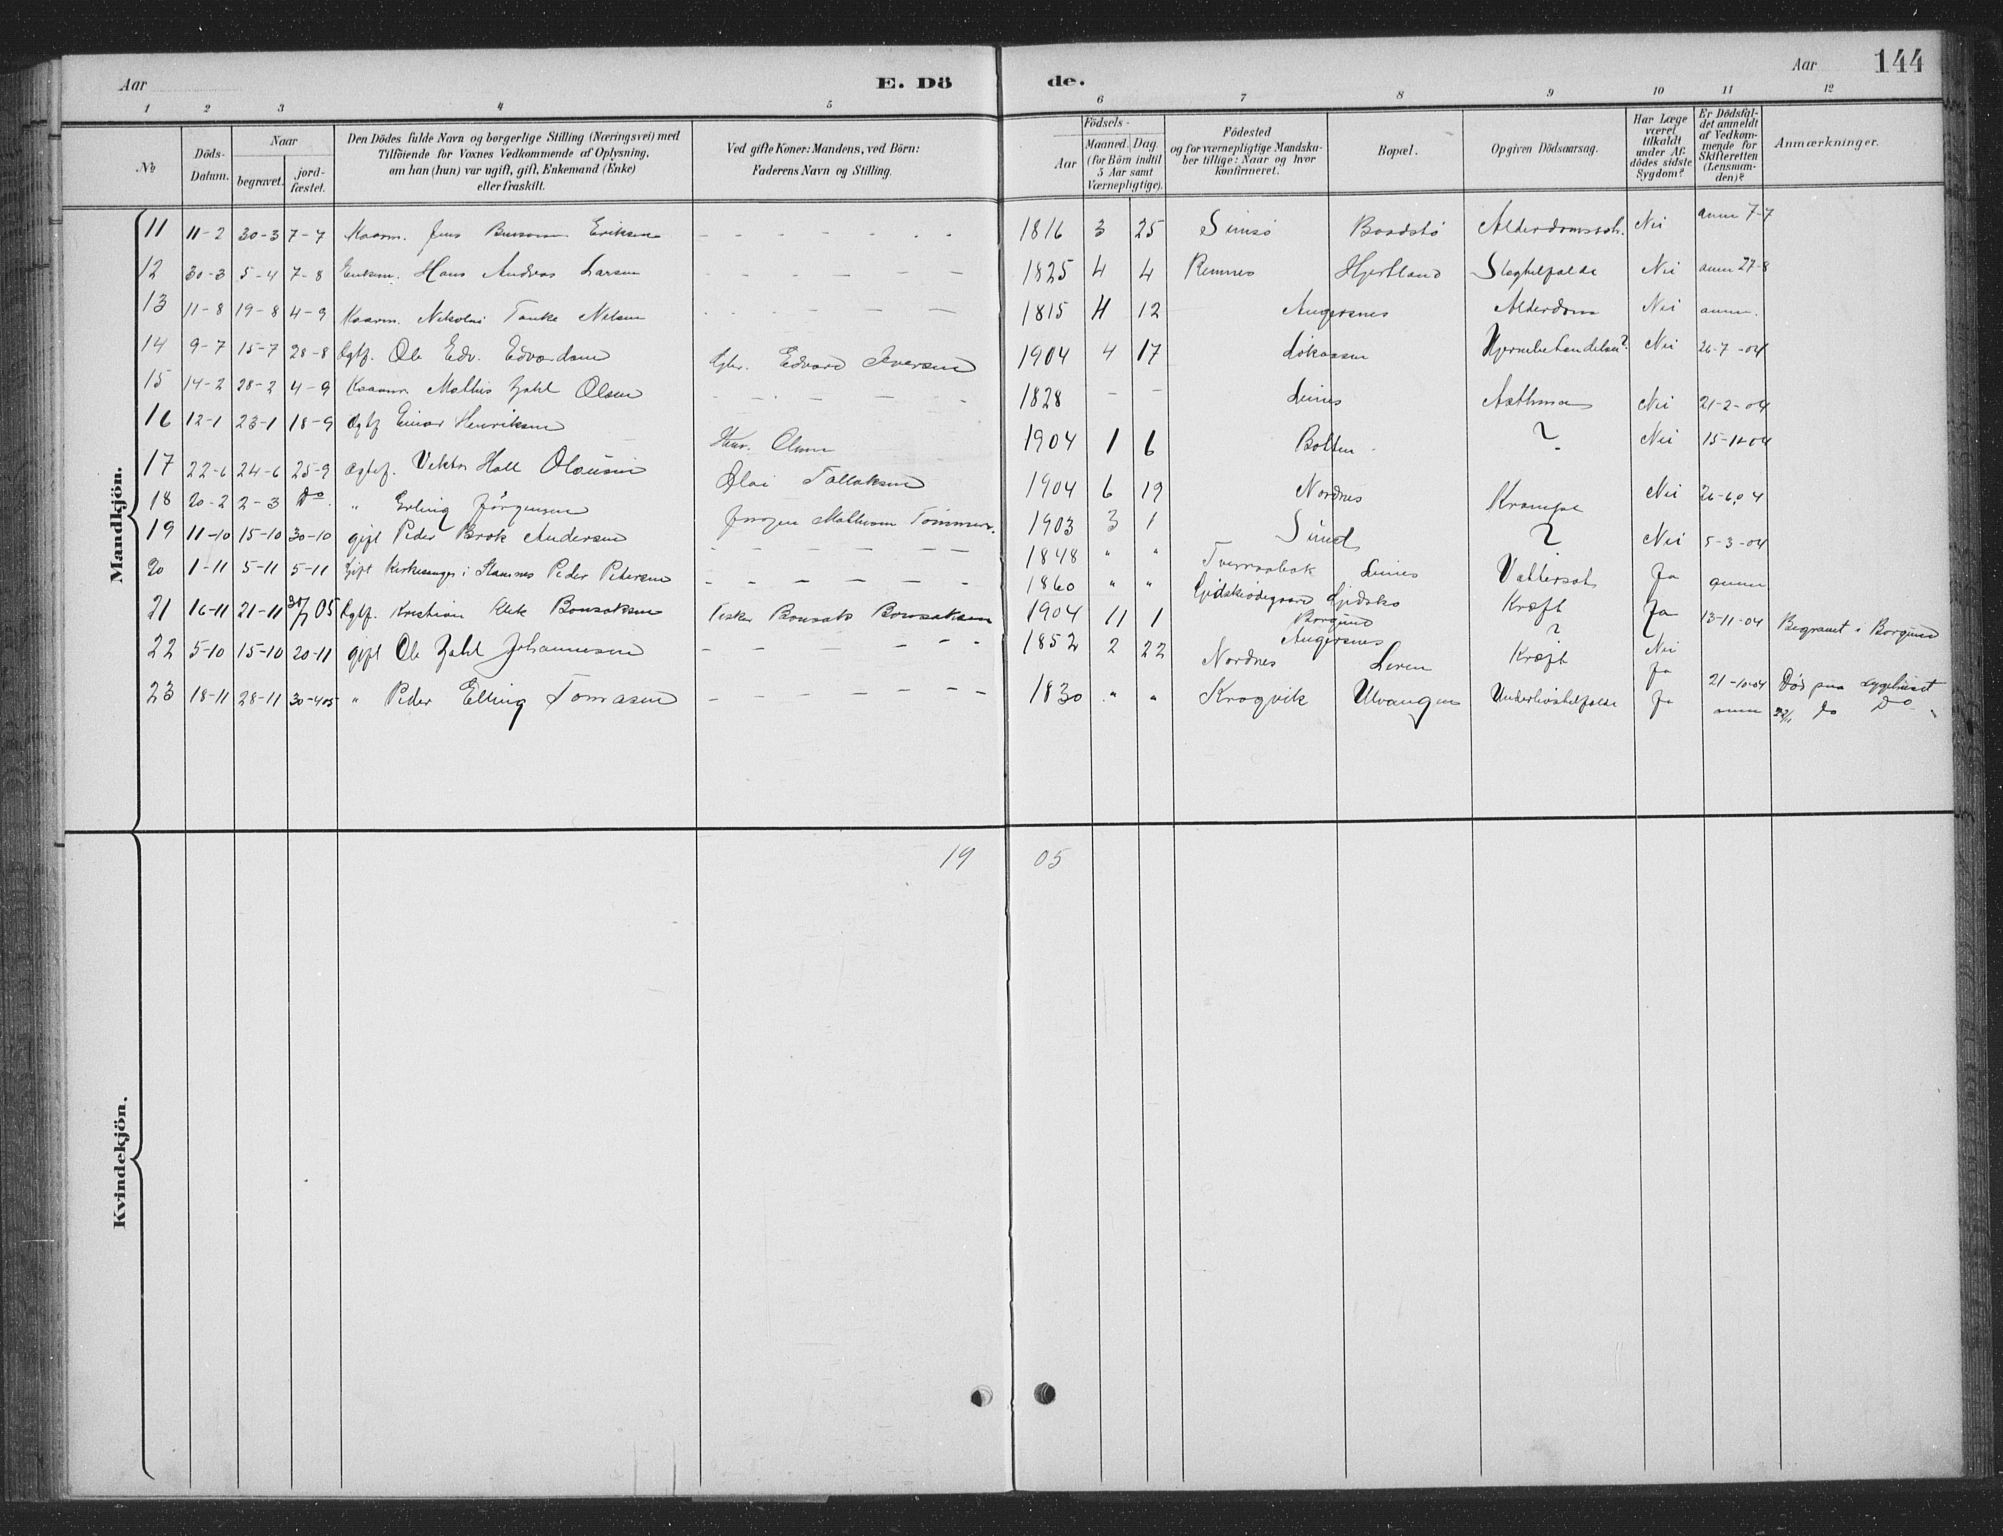 Aar
E. Dö
de.
Aar
144
1 2 3 4 5 6 7 8 9 10 11 12
No
Döds-Datum.
Naar
begravet.
jord-fæstet.
Den Dödes fulde Navn og borgerlige Stilling (Næringsvei) med
Tilföiende for Voxnes Vedkommende af Oplysning,
om han (hun) var ugift, gift, Enkemand (Enke)
eller fraskilt.
Ved gifte Koner: Mandens, ved Börn:
Faderens Navn og Stilling.
Födsels-
Aar
Maaned. Dag.
(for Börn indtil
5 Aar samt
Værnepligtige).
Födested
og for værnepligtige Mandska-
ber tillige: Naar og hvor
konfirmeret.
Bopæl.
Opgiven Dödsaarsag.
Har Læge
været
tilkaldt
under Af-
dödes sidste
Sygdom?
Er Dödsfal-
det anmeldt
af Vedkom-
mende for
Skifteretten
(Lensman-
den)?
Anmærkninger.
Mandkjön.
11 11-2 30-3 7-7 Kaarm. Jens Eriksen – – – 1816 3 25 Alderdomssvh. Nei anm 7-7
12 30-3 5-4 7-8 Enkem. Hans Andreas Larsen – – – 1825 4 4 Remnes Hjertland Slaghelfælde Nei anm 27-8
13 11-8 19-8 4-9 Kaarm. Nikolai Tanke Nilsen – – – 1815 4 12 Angersnes Alderdom Nei anm.
14 9-7 15-7 28-8 Ægtf. Ole Edv. Edvardsen Edvard Iversen 1904 4 17 Løkaasen Nei 26-7-04
15 14-2 28-2 4-9 Kaarm. Mathis Zahl Olsen – – – 1828 – – Leines Asthma Nei 21-2-04
16 12-1 23-1 18-9 Ægtf Einar Henriksen Olsen 1904 1 6 Bolten ? Nei
17 22-6 24-6 25-9 Ægtef. Viktor Hall Olausen Olai Tollaksen 1904 6 19 Nordnes Krampe Nei 26-6-04
18 20-2 2-3 Do " Erling Jörgensen Jörgen Mathisen 1903 3 1 ? Nei 5-3-04
19 11-10 15-10 30-10 gift Peder Brok Andersen – – – 1848 " " Leines Vattersot Ja anm
20 1-11 5-11 5-11 Gift Kirkesanger i Stamnes Peder Petersen – – – 1860 " " Kræft Ja
21 16-11 21-11 Ægtf. Kristian Bonsaksen Fisker Bonsak Bonsaksen 1904 11 1 Borgund ? Nei 13-11-04 Begravet i Borgund
22 5-10 15-10 20-11 gift Ole Zahl Johannesen – – – 1852 2 22 Angersnes Nordnes Leren Kræft Ja 21-10-04 Död paa sygehuset
23 18-11 28-11 30-4 05 " Peder Elling Tomasen – – – 1830 " " Krogvik Ulvangen Underlivshelfælde Ja anm Do
19 05
Kvindekjön.